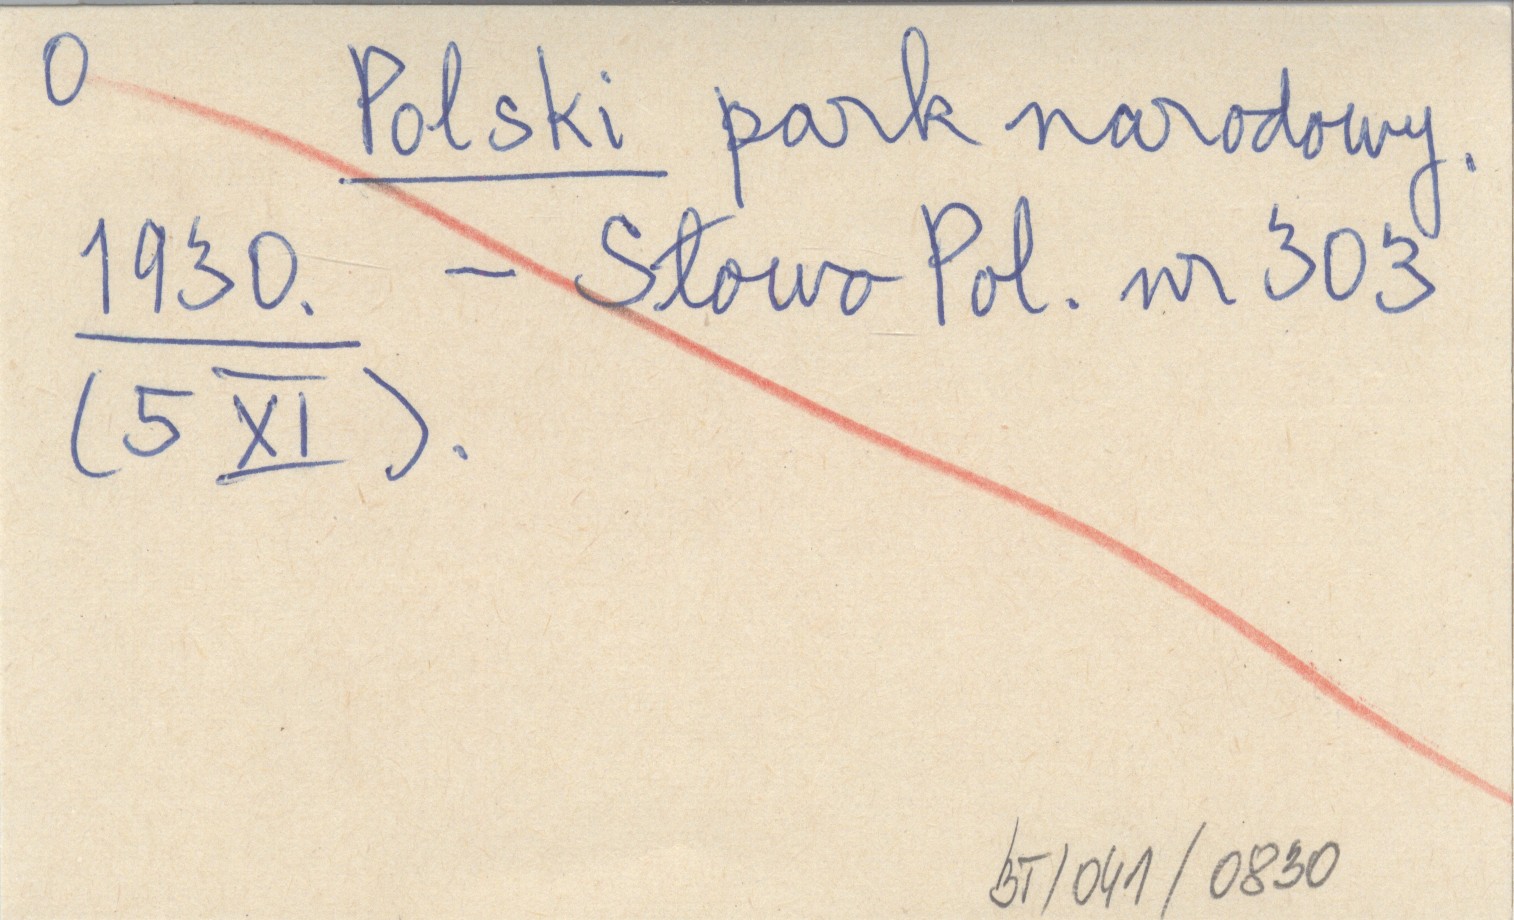 0 Polski park narodowy.
1930. – Słowo Pol. nr 303
(5 XI).
BT/041/0830